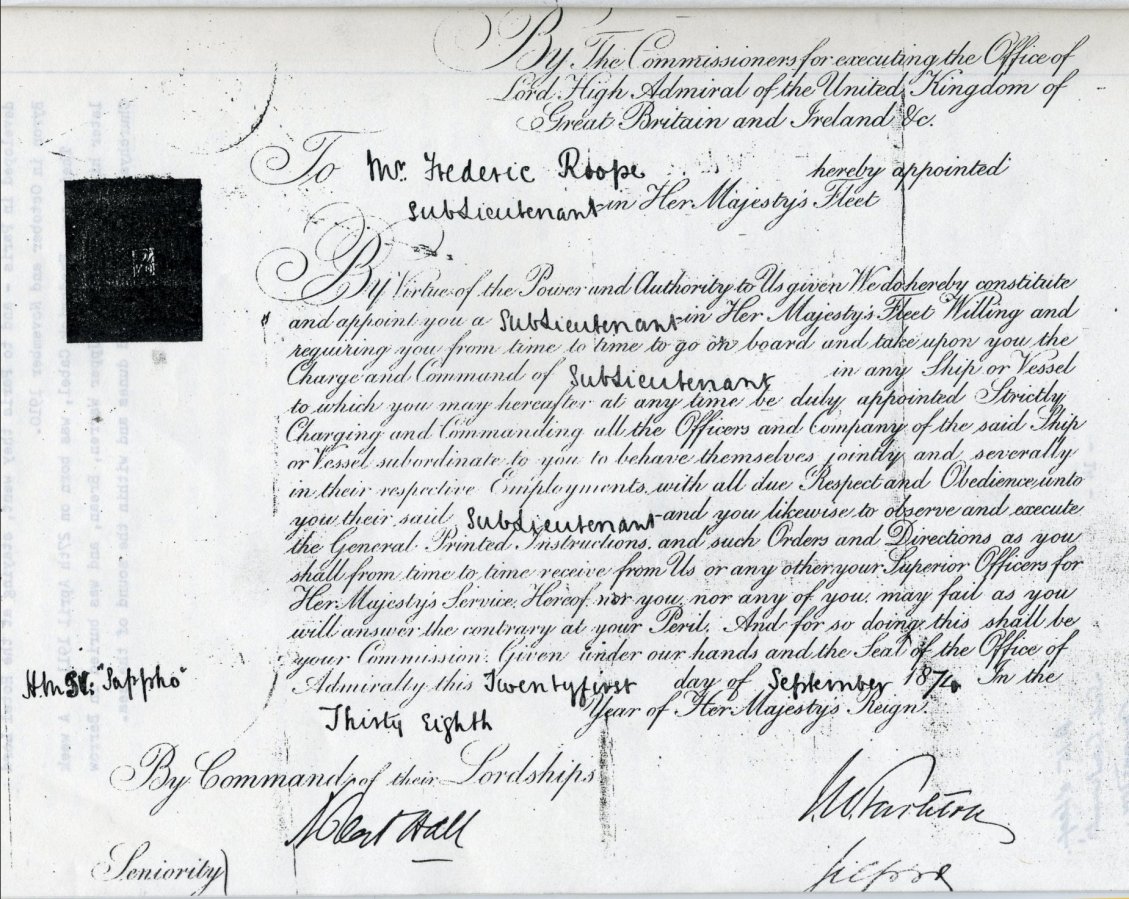 By The Commissioners for executing the Office of
Lord High Admiral of the United Kingdom of
Great Britain and Ireland &c.
To Mr. Frederic Roope hereby appointed
SubLieutenant in Her Majesty's Fleet
By Virtue of the Power and Authority to Us given We do hereby constitute
and appoint you a SubLieutenant in Her Majesty's Fleet Willing and
requiring you from time to time to go on board and take upon you the
Charge and Command of SubLieutenant in any Ship or Vessel
to which you may hereafter at any time be duly appointed Strictly
Charging and Commanding all the Officers and Company of the said Ship
or Vessel subordinate to you to behave themselves jointly and severally
in their respective Employments with all due Respect and Obedience unto
you their said SubLieutenant and you likewise to observe and execute
the General Printed Instructions, and such Orders and Directions as you
shall from time to time receive from Us or any other your Superior Officers for
Her Majesty's Service. Hereof nor you nor any of you may fail as you
will answer the contrary at your Peril. And for so doing this shall be
your Commission. Given under our hands and the Seal of the Office of
H.M.S. "Sappho"
Admiralty this Twentyfirst day of September 1874. In the
Thirty Eighth Year of Her Majesty's Reign.
By Command of their Lordships
Hall
Seniority